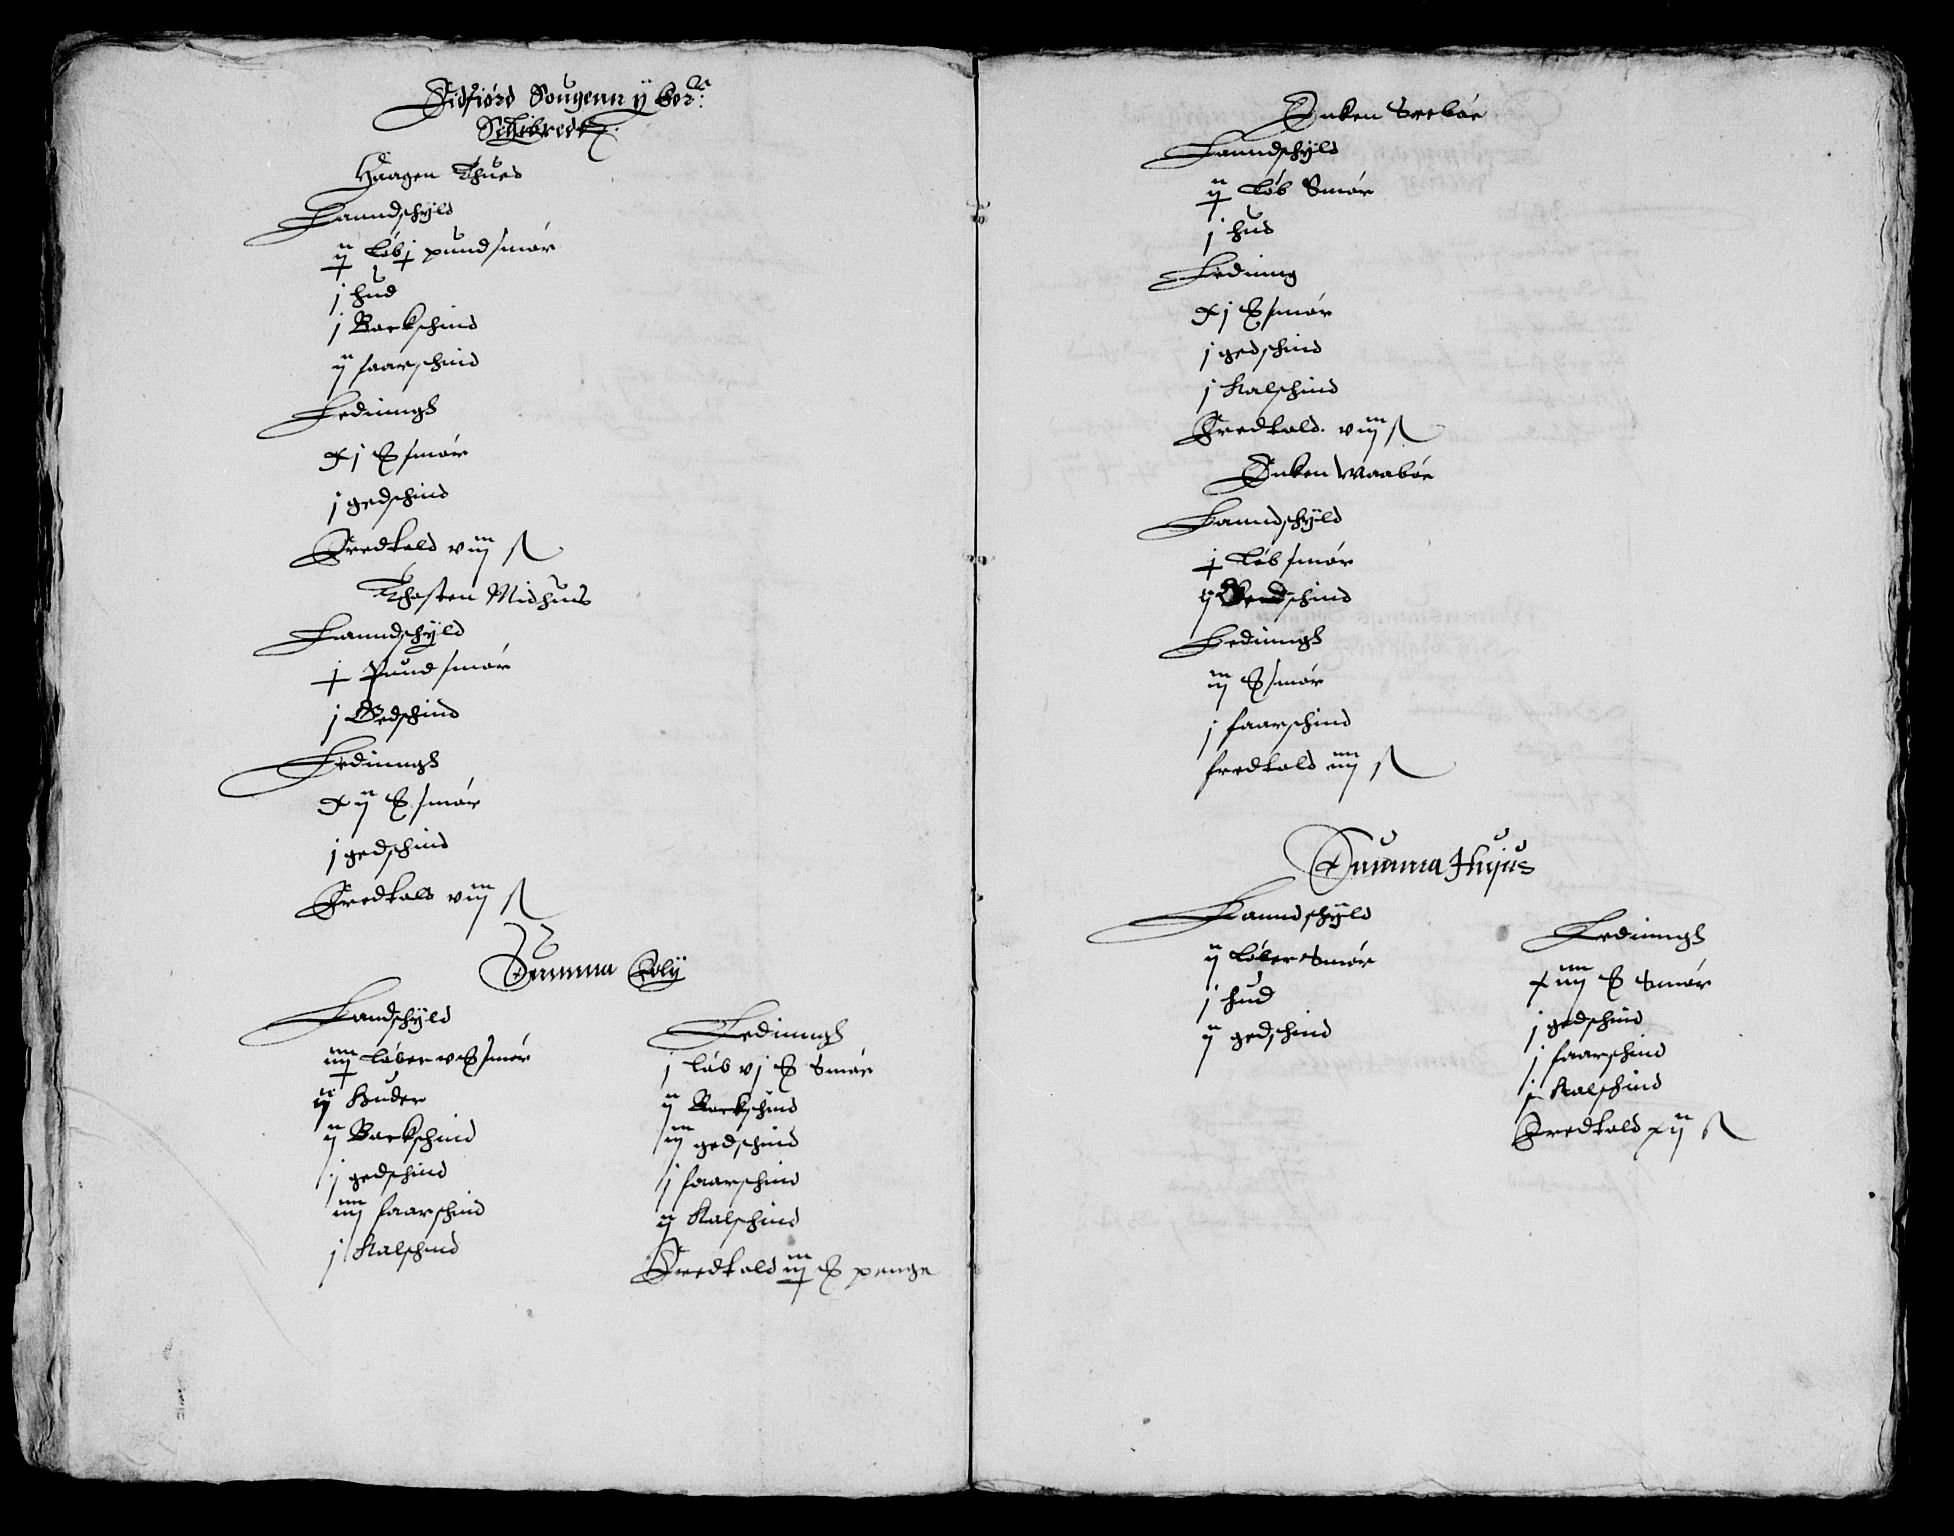 Sidfiørd Sougenn ÿ bor:
Schibrede
Haagen Thues
Lanndschÿld
ij løb j pund smør
j hud
j Backschind
ij faarschind
Lediungh
xj ℔ smør
j gedschind
Fredtold viij ß
Thosten Midhuus
Lanndschÿld
j Pund smør
j Gedschind
Lediungh
xij ℔ smør
j gedschind
Fredtold viij ß
Summa Folÿ
Landschÿld
iiij løber v ℔ smør
ij Huder
ij Backschind
j gedschind
iiij faarschind
j Kalschind
Lediungh
j løb vj ℔ Smør
ij Backschind
iij gedschind
j faarschind
ij Kalschind
Fredtold iij ℔ penge
Enken Trebøe
Lanndschÿld
ij løb Smør
j hud
Lediung
xj ℔ smør
j gedschind
j Kalschind
Fredtold viij ß
Enken Waabøe
Lanndschÿld
j løb smør
ij Gedschind
Lediungh
iij ℔ smør
j faarschind
fredtold iiij ß
Summa Hujus
Lanndschÿld
ij løber Smør
j hud
ij gedschind
Lediungh
xiiij ℔ Smør
j gedschind
j faarschind
j Kalschind
Fredtold xij ß